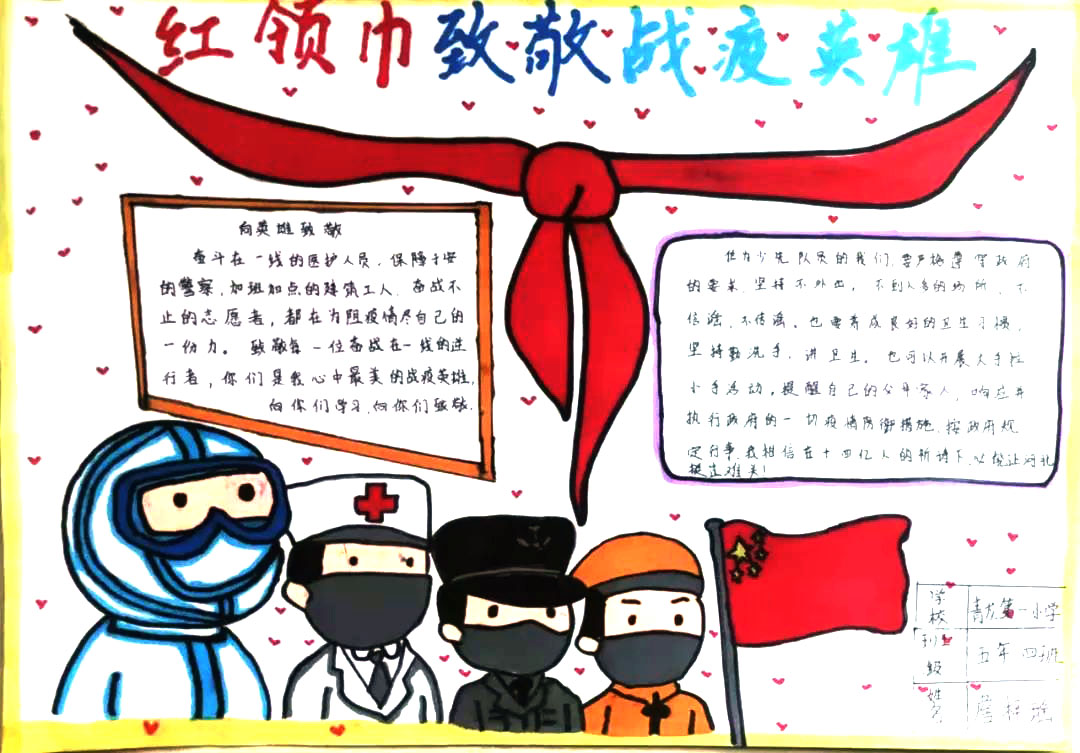 红领巾致敬战疫英雄
向英雄致敬
奋斗在一线的医护人员、保障平安
的警察,加班加点的建筑工人、奋战不
止的志愿者,都在为阻疫情尽自己的
一份力。致敬每一位奋战在一线的逆
行者,你们是我心中最美的战疫英雄,
向你们学习,向你们致敬.
作为少先队员的我们,要严格遵守政府
的要求.坚持不外出,不到人多的场所、不
信谣、不传谣。也要养成良好的卫生习惯,
坚持勤洗手、讲卫生。也可以开展大手拉
小手活动,提醒自己的父母家人,响应并
执行政府的一切疫情防御措施.按政府规
定行事.我相信在十四亿人的祈祷下,
难关!
学校 青龙第一小学
班级 五年四班
姓名